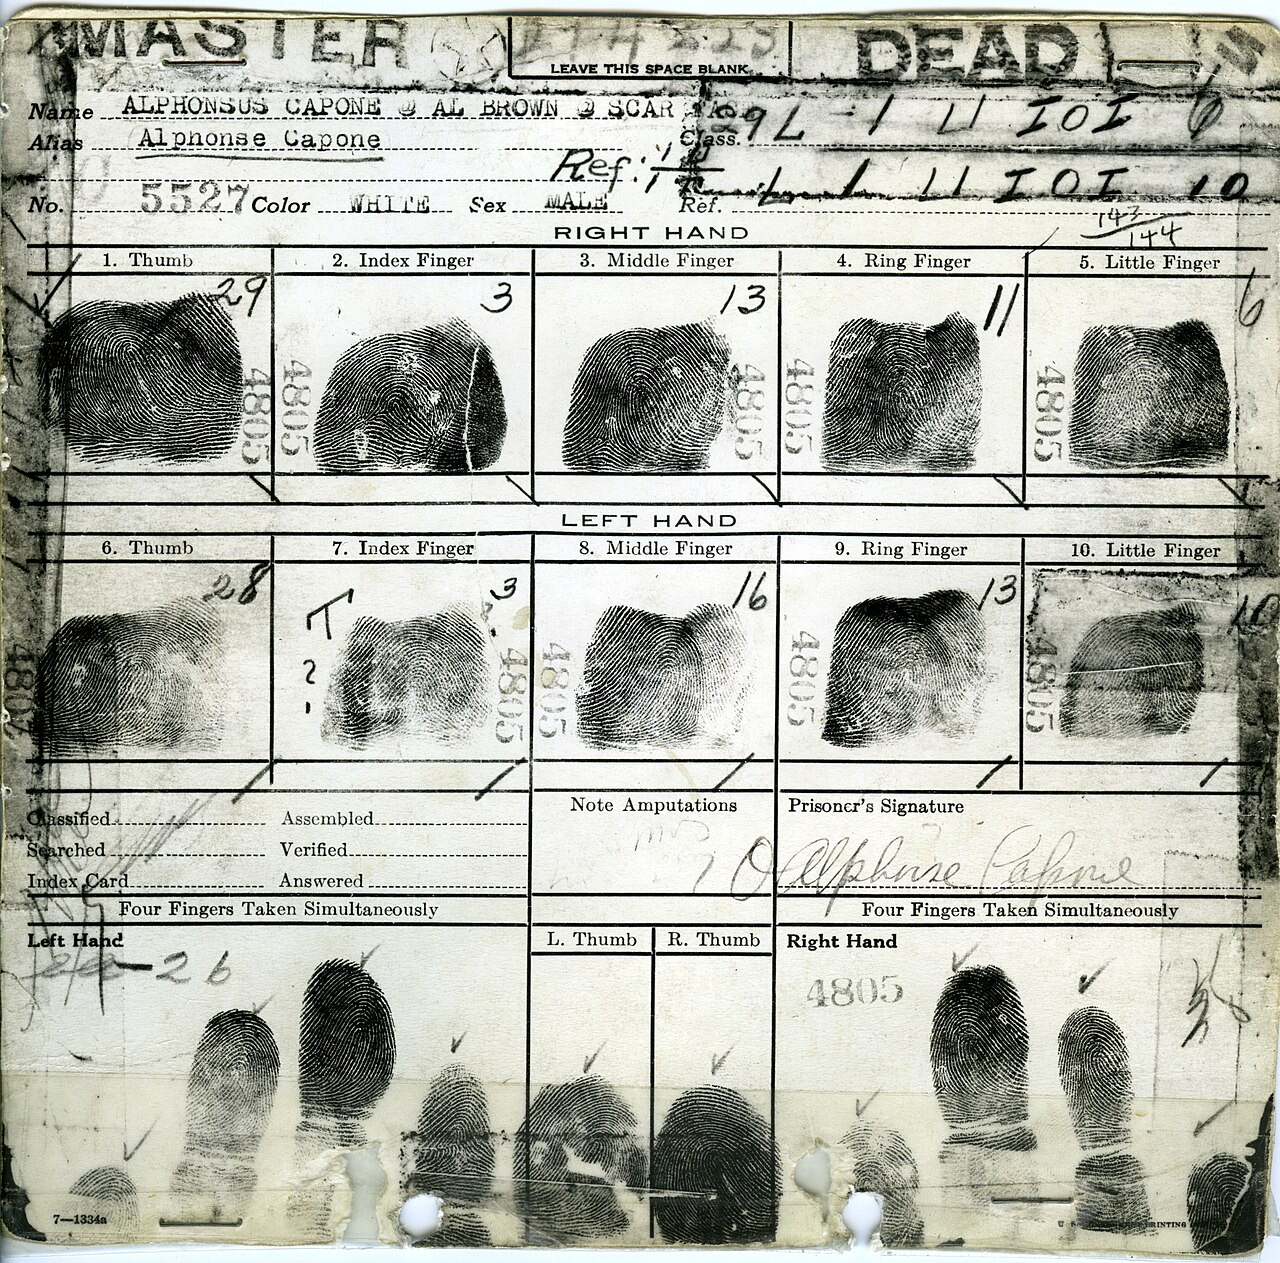 MASTER DEAD
LEAVE THIS SPACE BLANK
Name ALPHONSUS CAPONE @ AL BROWN @ SCAR
Class. 29 L 1 U IOI 6
Alias Alphonse Capone
Ref: L 1 U IOI 10
No. 5527 Color WHITE Sex MALE Ref.
143
144
RIGHT HAND
1. Thumb 2. Index Finger 3. Middle Finger 4. Ring Finger 5. Little Finger
29 3 13 11 6
4805 4805 4805 4805 4805
LEFT HAND
6. Thumb 7. Index Finger 8. Middle Finger 9. Ring Finger 10. Little Finger
28 T 3 16 13 10
?
4805 4805 4805 4805 4805
Classified Assembled Note Amputations Prisoner's Signature
Searched Verified
Index Card Answered Alphonse Capone
Four Fingers Taken Simultaneously Four Fingers Taken Simultaneously
Left Hand L. Thumb R. Thumb Right Hand
26 4805
7—1334a PRINTING